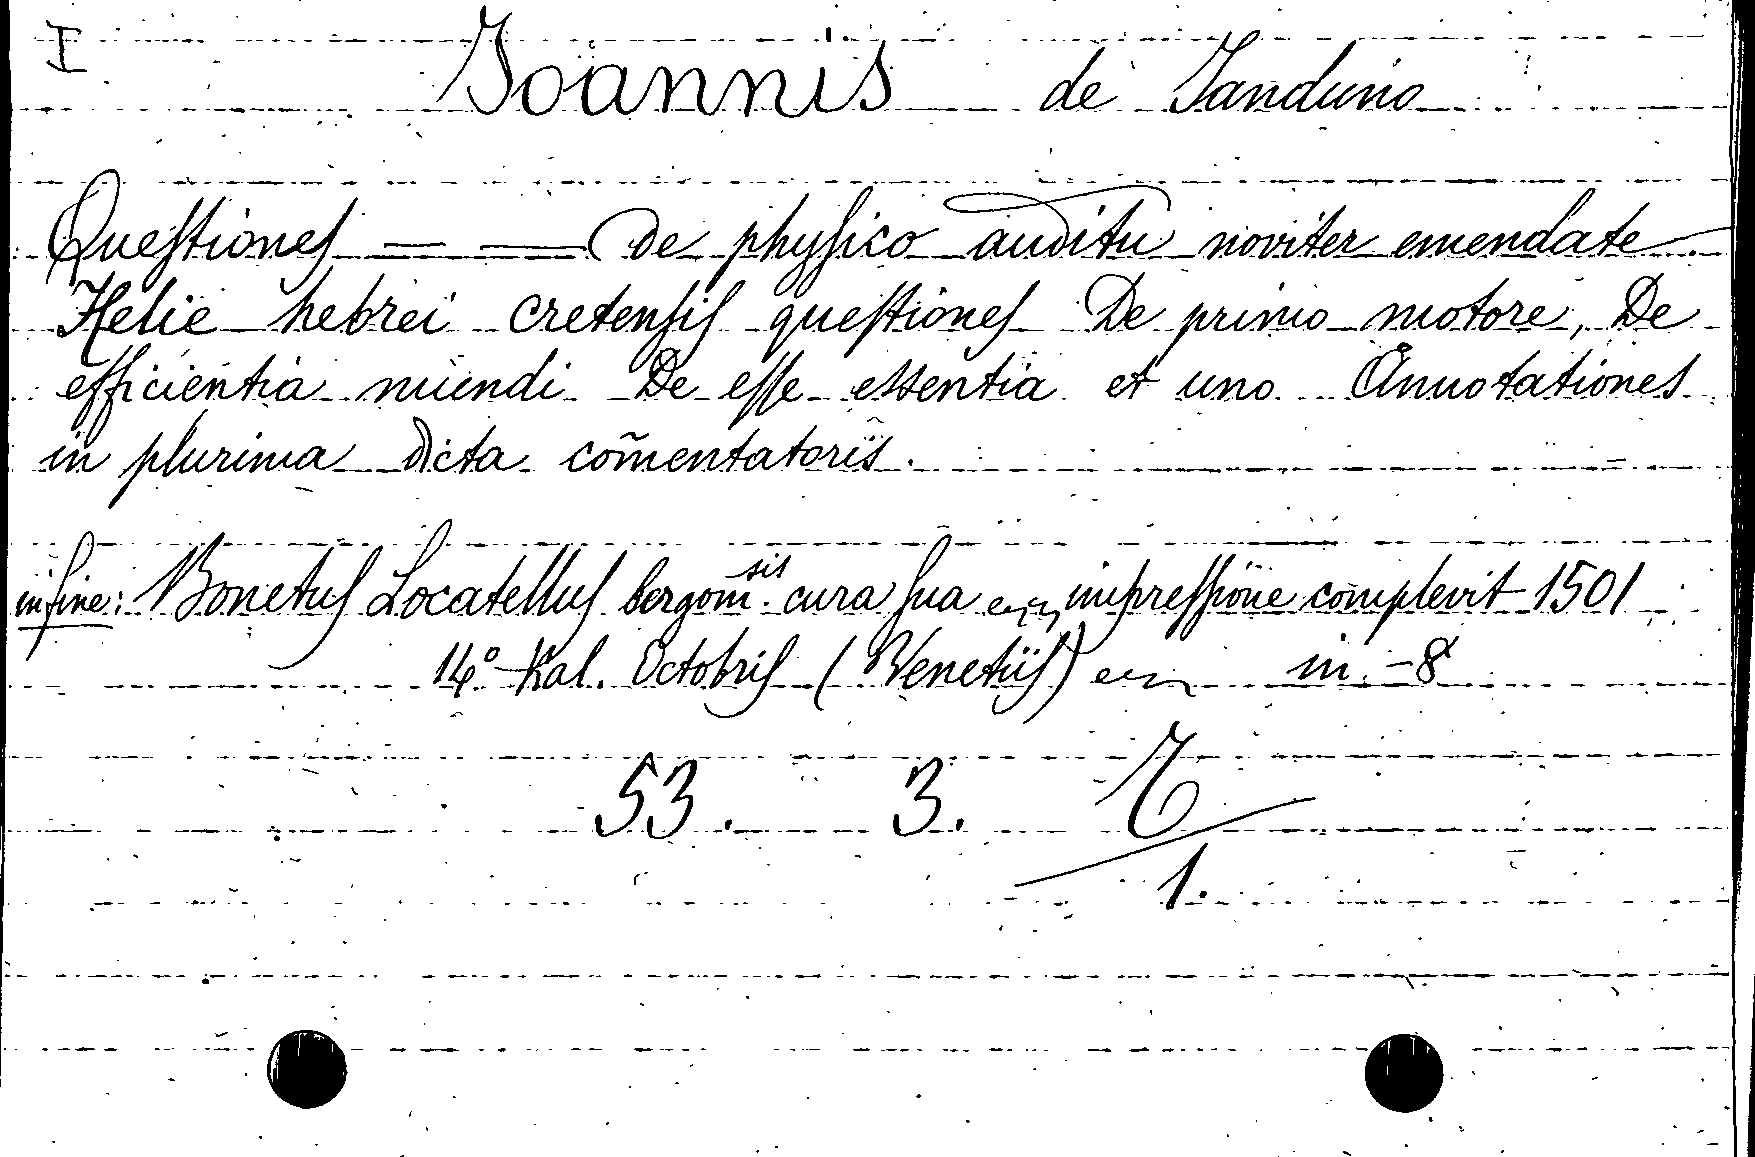 I
Joannis de Janduno
Queſtioneſ — — De phyſico auditu noviter emendate.
Helie hebrei cretenſiſ queſtioneſ De primo motore, De
efficientia mundi De eſſe essentia et uno. Annotationes
in plurima dicta com̃entatoris.
in fine: Bonetuſ Locatelluſ bergom̄.sis cura ſua impreſſione complevit 1501
14° Kal. Octobriſ (Venetiiſ) in-8
53. 3.
1.